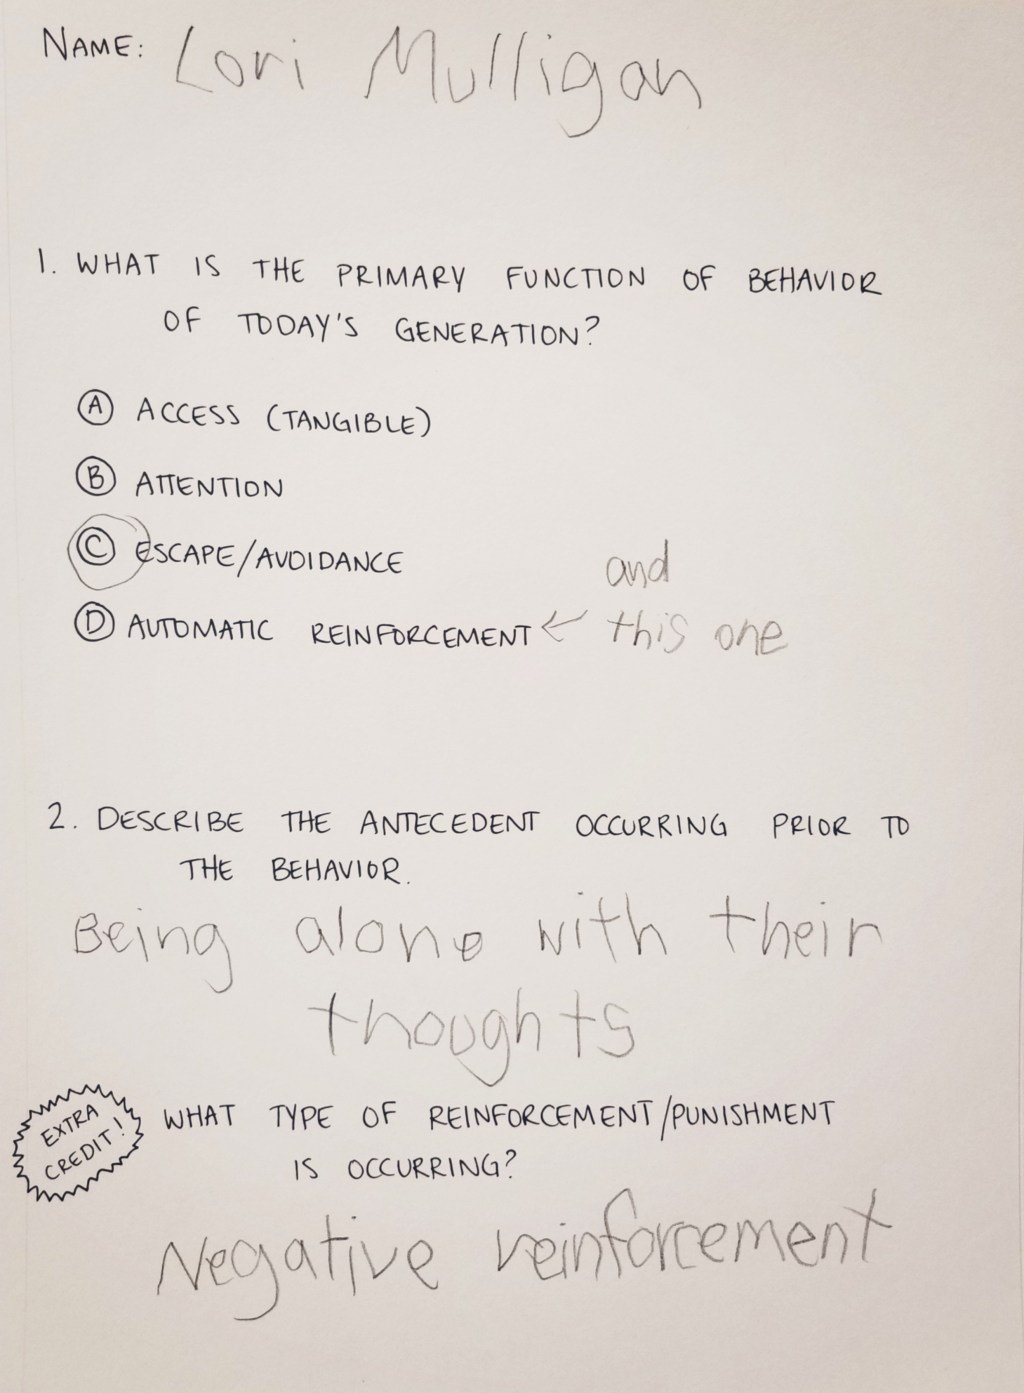 NAME: Lori Mulligan
1. WHAT IS THE PRIMARY FUNCTION OF BEHAVIOR
OF TODAY'S GENERATION?
A ACCESS (TANGIBLE)
B ATTENTION
C ESCAPE/AVOIDANCE
and
D AUTOMATIC REINFORCEMENT ← this one
2. DESCRIBE THE ANTECEDENT OCCURRING PRIOR TO
THE BEHAVIOR.
Being alone with their
thoughts
EXTRA
CREDIT!
WHAT TYPE OF REINFORCEMENT/PUNISHMENT
IS OCCURRING?
Negative reinforcement